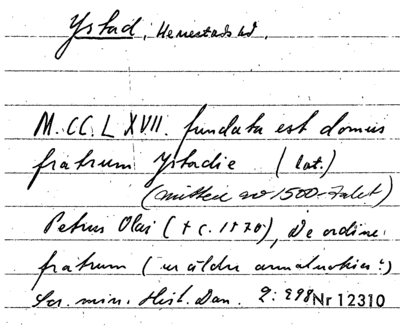 Ystad, Herrestads hd,
M.CC.LXVII. fundata est domus
fratrum Ystadie (lat.)
(mitten av 1500-talet)
Petrus Olai (+ c. 1570), De ordine
fratrum (ur äldre annalnotiser?)
Scr. min. Hist. Dan. 2:298 Nr 12310